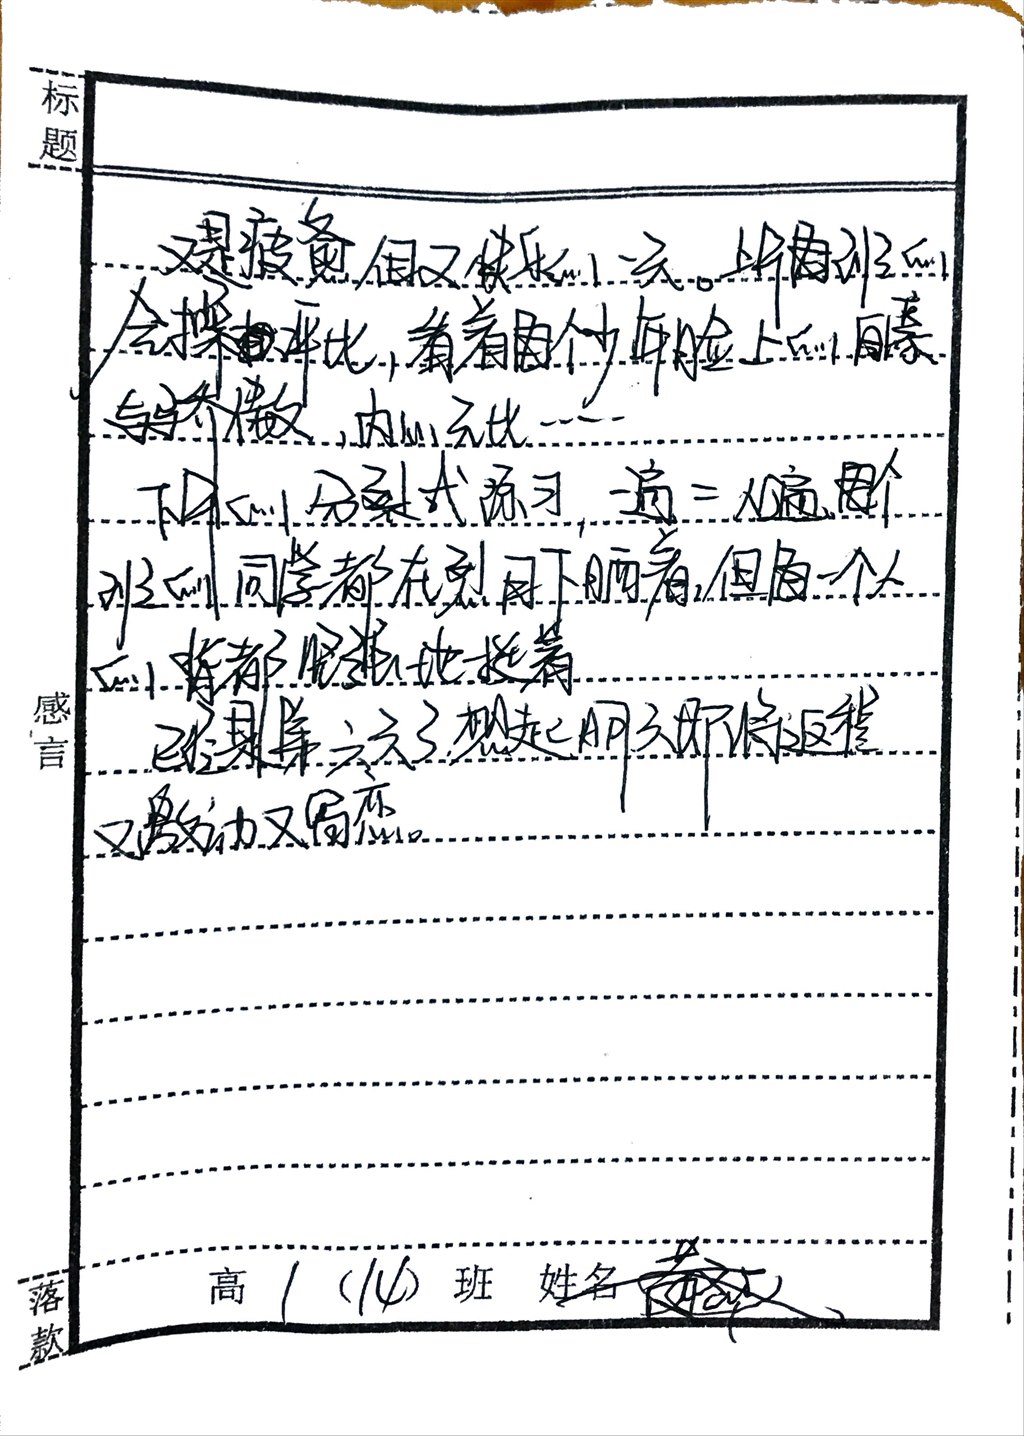 标题
又是疲惫但又快乐的一天。上午每班的
会操评比,看着每个少年脸上的自豪
与骄傲,内心无比……
下午的分列式练习,一遍二遍,每个
班的同学都在烈日下晒着,但每一个人
的背都坚强地挺着
感言
已经是第六天了,想起明天即将返程
又激动又留恋。
落款
高1(14)班 姓名